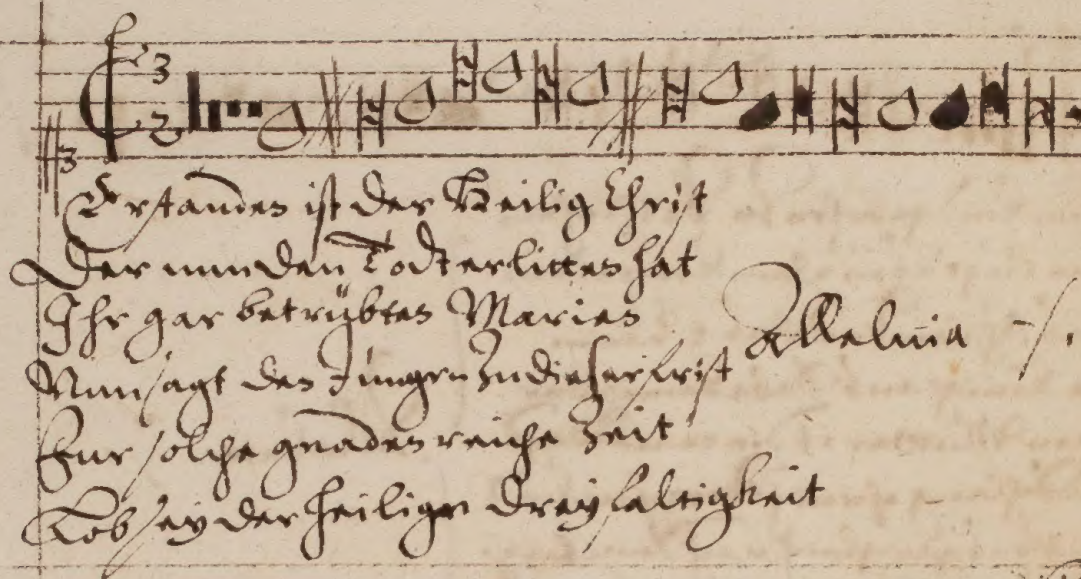 3
2
3
Erstanden ist der Heilig Christ
Der nun den Todt erlitten hat
Ihr gar betrübten Marien
Alleluia
Nun sagt den Jüngern zu dießer frist
Für solche gnaden reiche Zeit
Lob sey der heiligen Dreyfaltigkeit